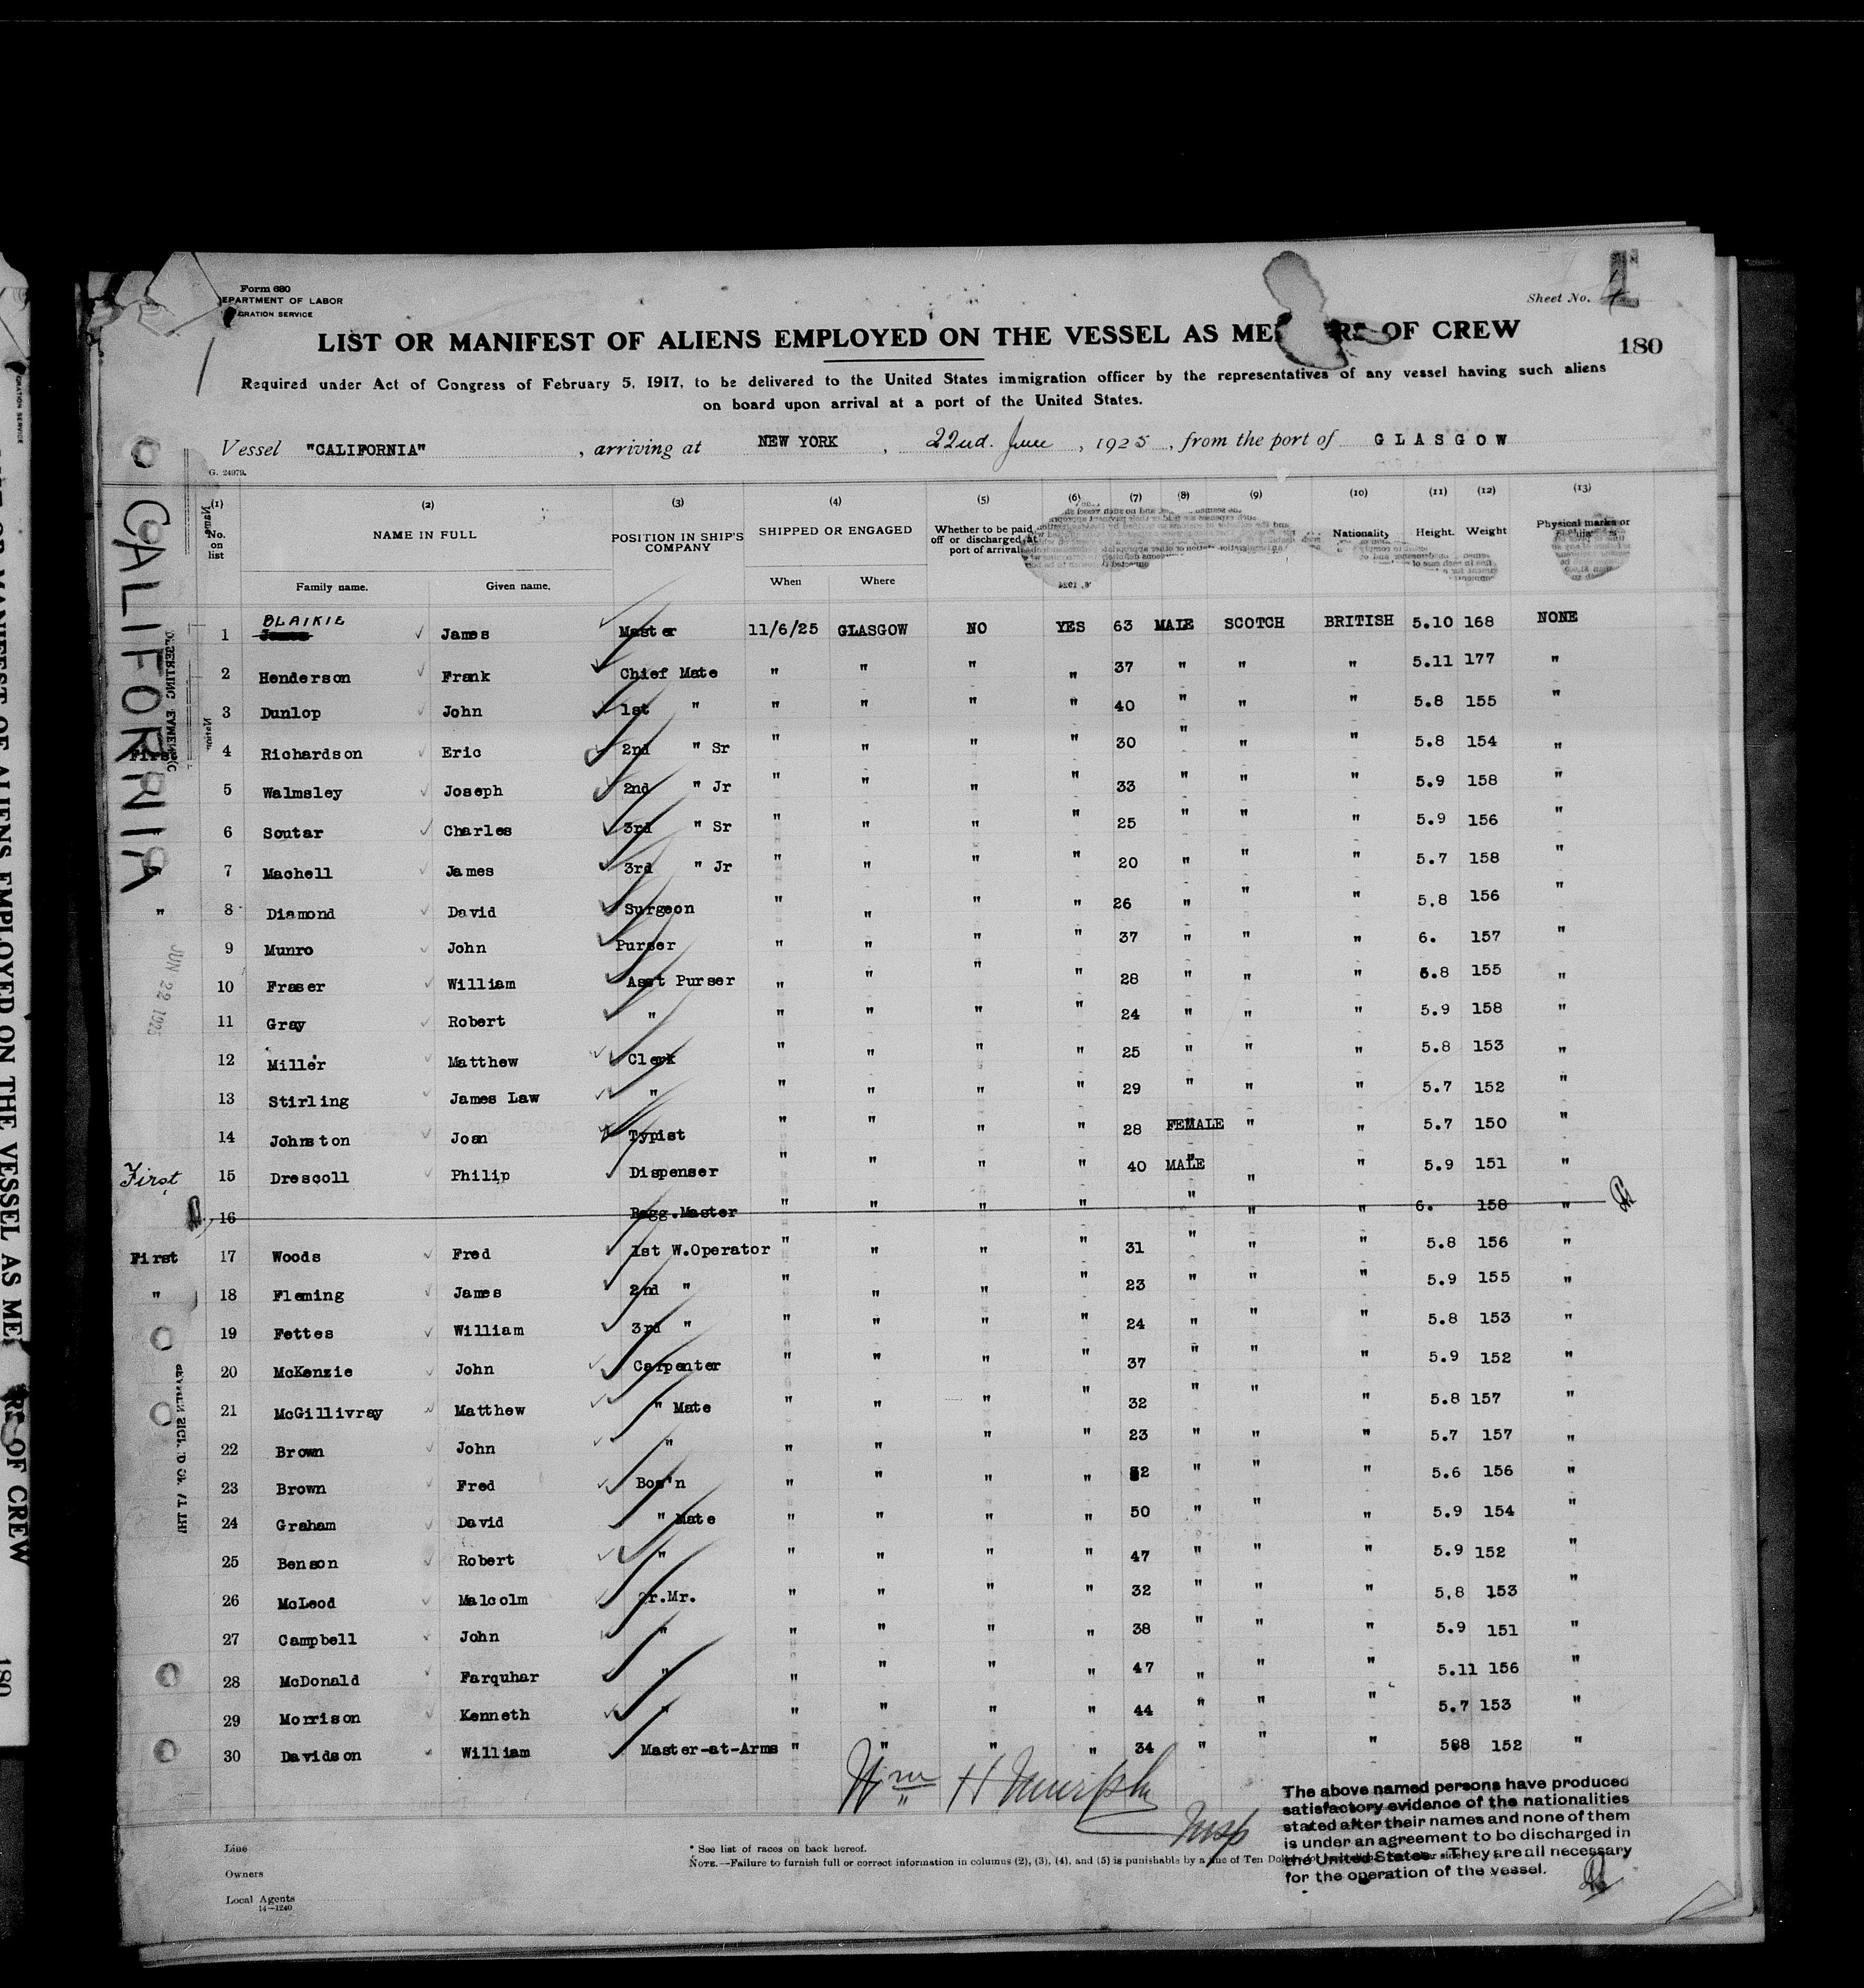 Form 680
EPARTMENT OF LABOR
GRATION SERVICE
Sheet No. 1
180
LIST OR MANIFEST OF ALIENS EMPLOYED ON THE VESSEL AS ME RS OF CREW
Required under Act of Congress of February 5, 1917, to be delivered to the United States immigration officer by the representatives of any vessel having such aliens
on board upon arrival at a port of the United States.
Vessel "CALIFORNIA" , arriving at NEW YORK , 22nd. June , 1925 , from the port of GLASGOW
G. 24979.
CALIFORNIA
(1) (2) (3) (4) (5) (6) (7) (8) (9) (10) (11) (12) (13)
No. on list NAME IN FULL POSITION IN SHIP'S COMPANY SHIPPED OR ENGAGED Whether to be paid off or discharged at port of arrival Nationality Height. Weight Physical marks or
Family name. Given name. When Where
1 BLAIKIE James Master 11/6/25 GLASGOW NO YES 63 MALE SCOTCH BRITISH 5.10 168 NONE
2 Henderson Frank Chief Mate " " " " 37 " " " 5.11 177 "
3 Dunlop John 1st " " " " " 40 " " " 5.8 155 "
First 4 Richardson Eric 2nd " Sr " " " " 30 " " " 5.8 154 "
5 Walmsley Joseph 2nd " Jr " " " " 33 " " " 5.9 158 "
" 6 Soutar Charles 3rd " Sr " " " " 25 " " " 5.9 156 "
7 Machell James 3rd " Jr " " " " 20 " " " 5.7 158 "
" 8 Diamond David Surgeon " " " " 26 " " " 5.8 156 "
9 Munro John Purser " " " " 37 " " " 6. 157 "
10 Fraser William Asst Purser " " " " 28 " " " 5.8 155 "
11 Gray Robert " " " " " 24 " " " 5.9 158 "
12 Miller Matthew Clerk " " " " 25 " " " 5.8 153 "
13 Stirling James Law " " " " " 29 " " " 5.7 152 "
14 Johnston Joan Typist " " " " 28 FEMALE " " 5.7 150 "
First 15 Drescoll Philip Dispenser " " " " 40 MALE " " 5.9 151 "
16 Bagg.Master " " " " " " " 6. 158 "
First 17 Woods Fred 1st W.Operator " " " " 31 " " " 5.8 156 "
" 18 Fleming James 2nd " " " " " 23 " " " 5.9 155 "
19 Fettes William 3rd " " " " " 24 " " " 5.8 153 "
20 McKenzie John Carpenter " " " " 37 " " " 5.9 152 "
21 McGillivray Matthew " Mate " " " " 32 " " " 5.8 157 "
22 Brown John " " " " " 23 " " " 5.7 157 "
23 Brown Fred Bos'n " " " " 2 " " " 5.6 156 "
24 Graham David " Mate " " " " 50 " " " 5.9 154 "
25 Benson Robert " " " " " 47 " " " 5.9 152 "
26 McLeod Malcolm Qr.Mr. " " " " 32 " " " 5.8 153 "
27 Campbell John " " " " " 38 " " " 5.9 151 "
28 McDonald Farquhar " " " " " 47 " " " 5.11 156 "
29 Morrison Kenneth " " " " " 44 " " " 5.7 153 "
30 Davidson William Master-at-Arms " " " " 34 " " " 588 152 "
JUN 22 1925
Wm H Murphy
Insp
The above named persons have produced
satisfactory evidence of the nationalities
stated after their names and none of them
is under an agreement to be discharged in
the United States. They are all necessary
for the operation of the vessel.
Line
Owners
Local Agents
14—1240
* See list of races on back hereof.
NOTE.—Failure to furnish full or correct information in columns (2), (3), (4), and (5) is punishable by a fine of Ten